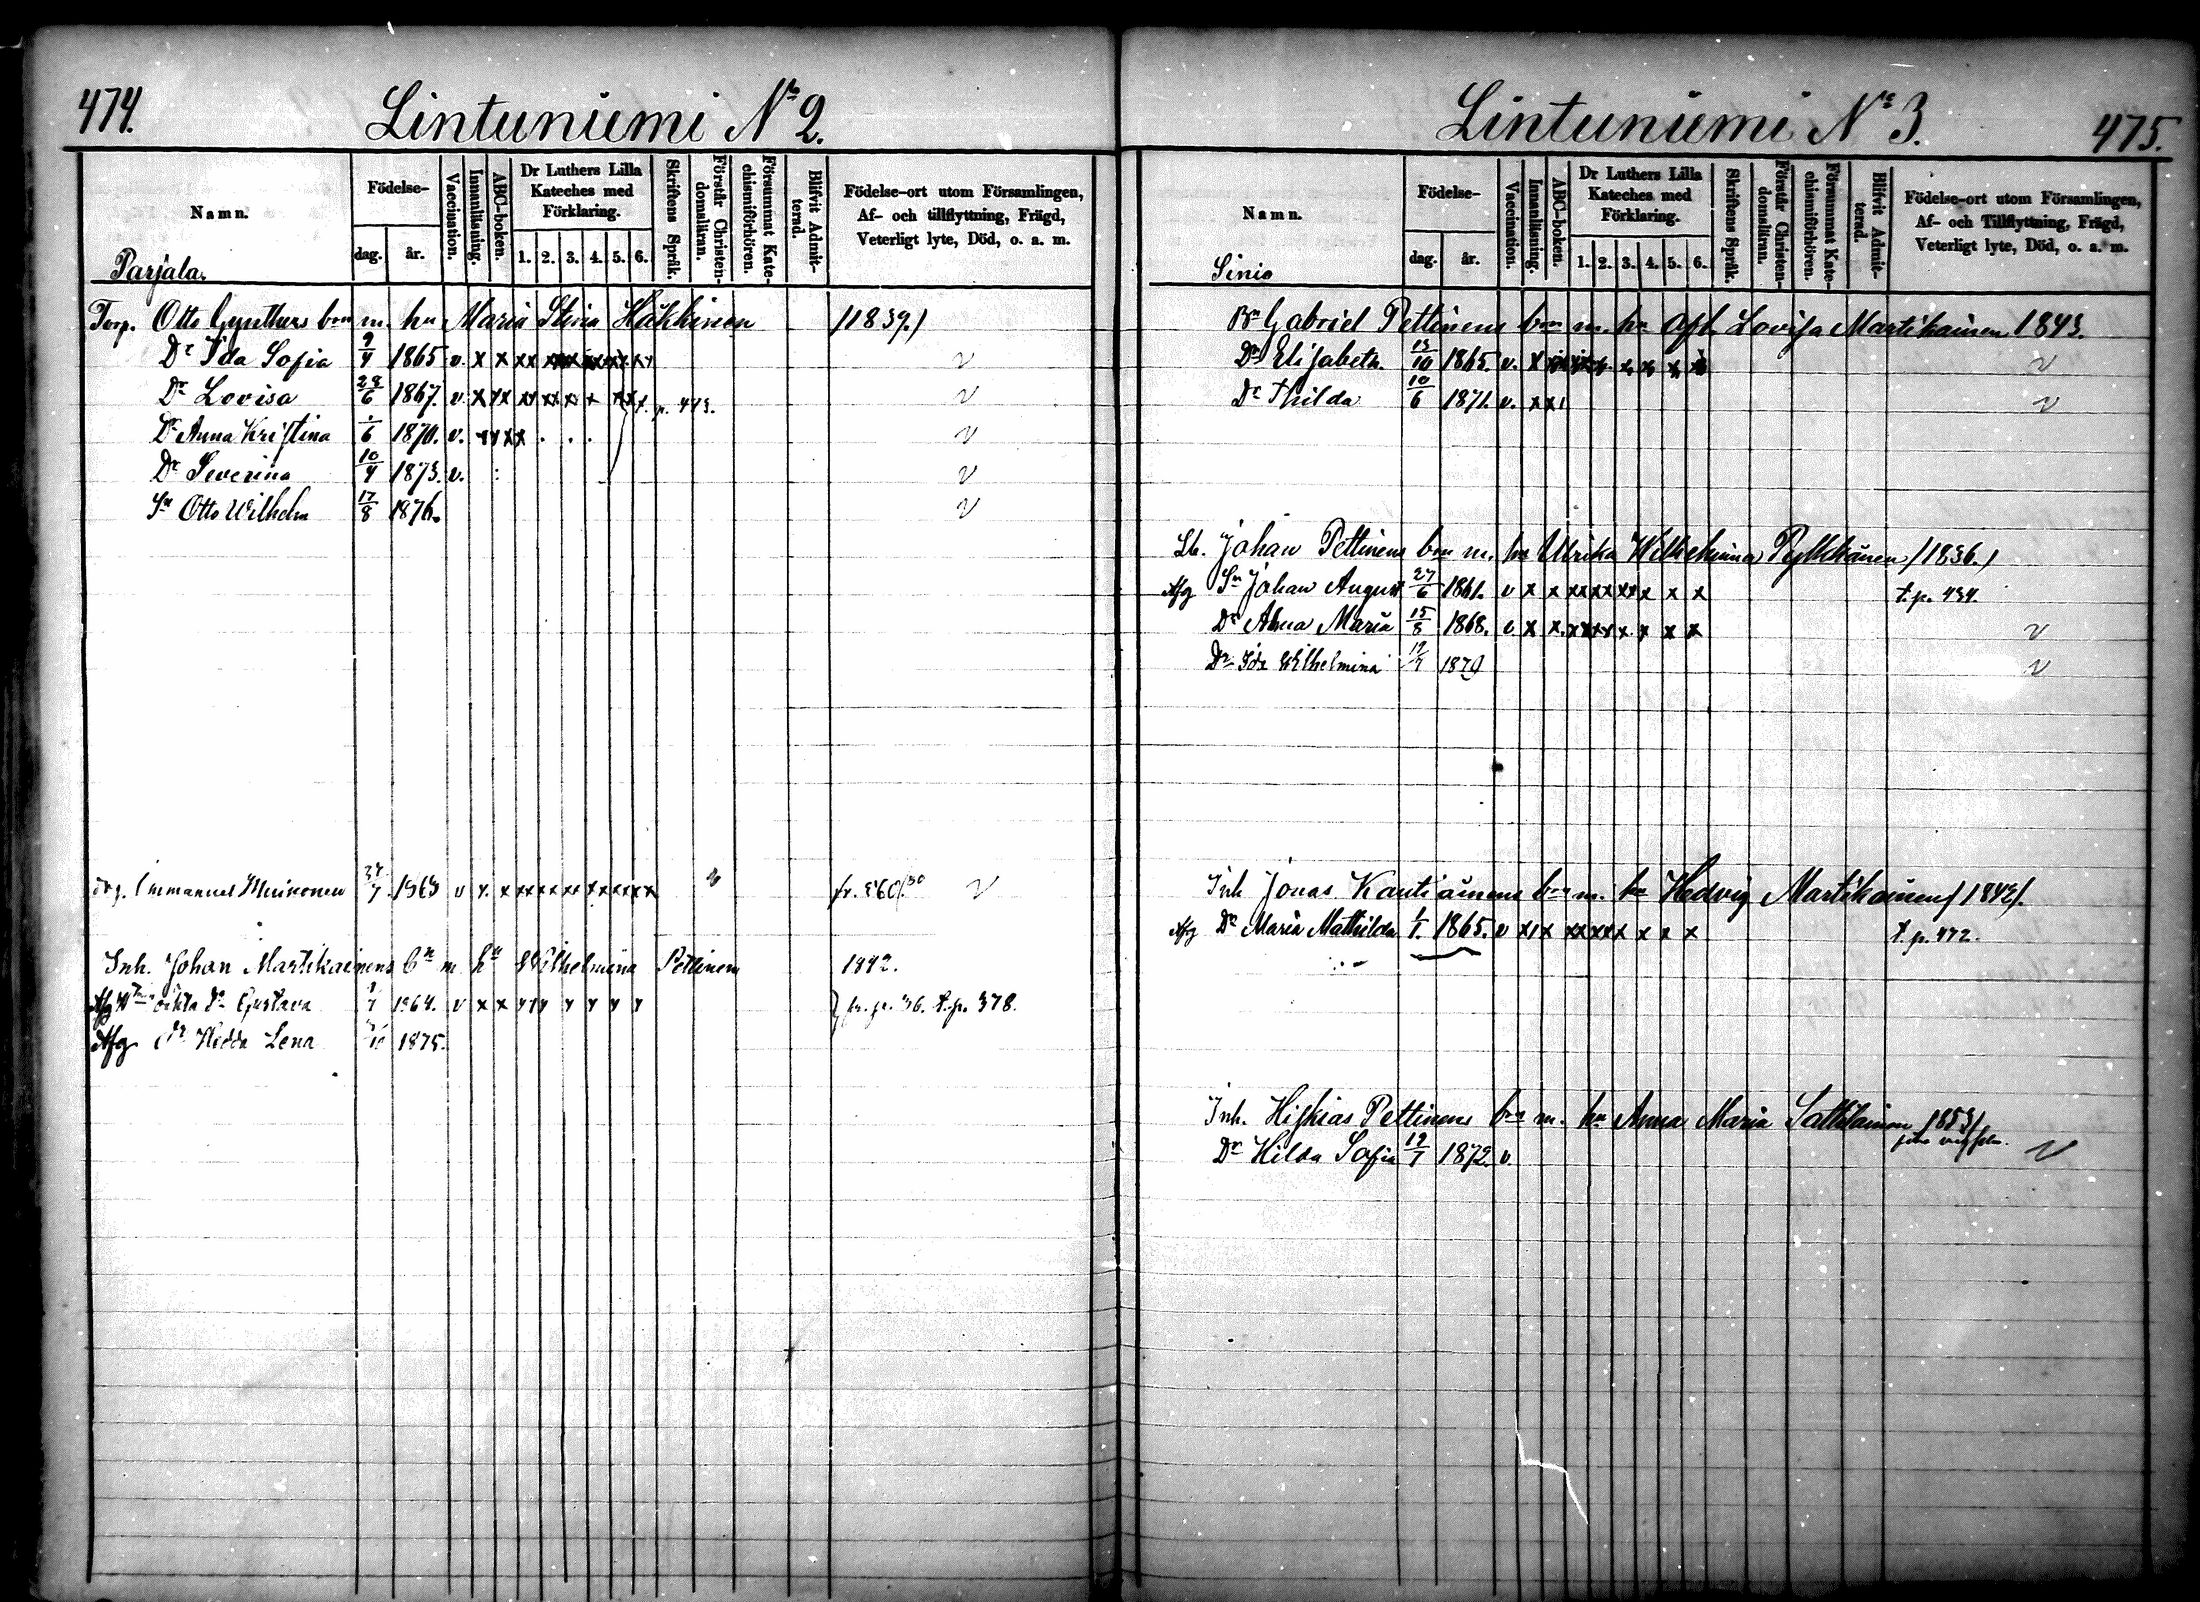 474.
Lintuniemi No 2.
Namn.
Födelse-
dag. år.
Vaccination.
Innanläsning.
ABC-boken.
Dr Luthers Lilla Kateches med Förklaring.
1. 2. 3. 4. 5. 6.
Skriftens Språk.
Förstår Christendomsläran.
Försummat Katechismiförhören.
Blifvit Admitterad.
Födelse-ort utom Församlingen,
Af- och tillflyttning, Frägd,
Veterligt lyte, Död, o. a. m.
Parjala.
Torp. Otto Gynthers bn m. hu Maria Stina Häkkinen /1839./
Dr Ida Sofia 9/4 1865 v x x xx
Dr Lovisa 28/6 1867. v. x xx xx xx xx x xx t. p. 473.
Dr Anna Kristina 1/6 1870. v. xx xx . . .
Dr Severina 10/4 1873. v.
Sn Otto Wilhelm 17/8 1876.
Emmanuel 1863 v x. x xx xx xx xx xx xx
Inh. Johan Martikainens bn m. hu Wilhelmina Pettinen 1842.
Afg Dr Gustava 1864. v x x xx x x x x fr. p. 36. t. p. 378.
Afg Dr Hedda Lena 1875.
Lintuniemi No 3.
475.
Namn.
Födelse-
dag. år.
Vaccination.
Innanläsning.
ABC-boken.
Dr Luthers Lilla Kateches med Förklaring.
1. 2. 3. 4. 5. 6.
Skriftens Språk.
Förstår Christendomsläran.
Försummat Katechismiförhören.
Blifvit Admitterad.
Födelse-ort utom Församlingen,
Af- och Tillflyttning, Frägd,
Veterligt lyte, Död, o. a. m.
Sinio
Bn Gabriel Pettinens bn m. hu afl. Lovisa Martikainen 1843.
Dr Elisabeth. 13/10 1865. v. x
Dr Thilda 10/6 1871. v. xx
Johan Pettinens bn m. hu Ulrika Wilhelmina Pylkkänen /1836./
Afg Sn Johan August 27/6 1861. v x x xx xx xx x x x t. p. 434.
Dr Anna Maria 15/8 1868. v x x. xx xx x x x x
Dr Ida Wilhelmina 1870
Inh Jonas Kautiainens bn m. hu Hedvig Martikainen /1842/.
Afg Dr Maria Mathilda 1/1. 1865. v xx x xx xx x x x x t. p. 472.
Inh. Hiskias Pettinens bn m. hu Anna Maria 1853/
Dr Hilda Sofia 1872. v.